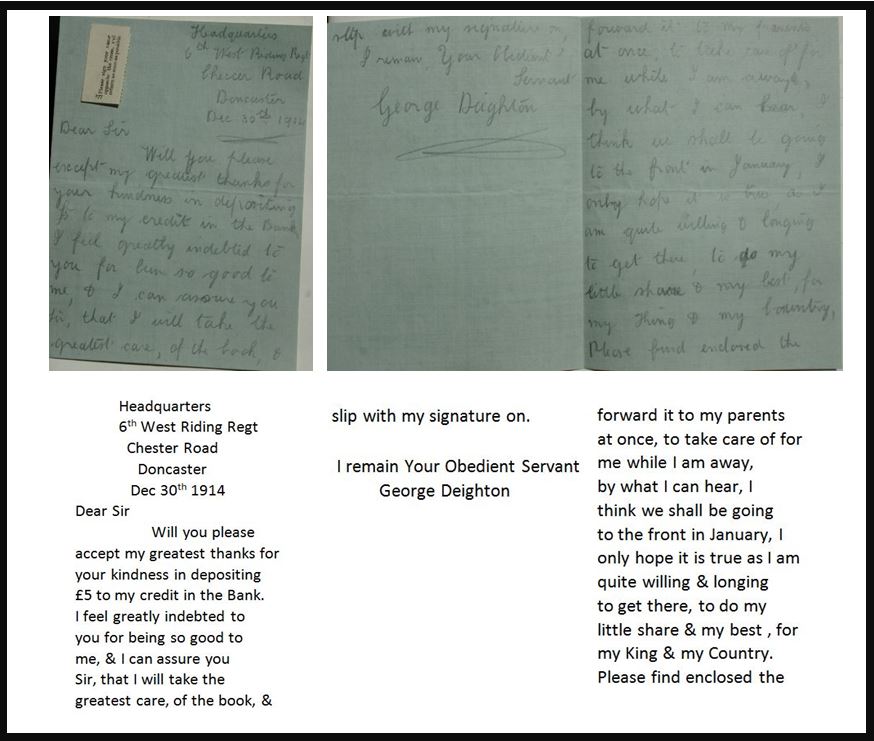 Please sign your name
opposite the cross, and
return as soon as possible.
Headquarters
6th West Riding Regt
Checcer Road
Doncaster
Dec 30th 1914
Dear Sir
Will you please
except my greatest thanks for
your kindness in depositing
£5 to my credit in the Bank
I feel greatly indebted to
you for bein so good to
me, & I can assure you
Sir, that I will take the
greatest care, of the book, &
slip with my signature on,
I remain Your Obedient
Servant
George Deighton
forward it to my parents
at once, to take care of for
me while I am away,
by what I can hear, I
think we shall be going
to the front in January, I
only hope it is true, as I
am quite willing & longing
to get there, to do my
little share & my best, for
my King & my Country,
Please find enclosed the
Headquarters
6th West Riding Regt
Chester Road
Doncaster
Dec 30th 1914
Dear Sir
Will you please
accept my greatest thanks for
your kindness in depositing
£5 to my credit in the Bank.
I feel greatly indebted to
you for being so good to
me, & I can assure you
Sir, that I will take the
greatest care, of the book, &
slip with my signature on.
I remain Your Obedient Servant
George Deighton
forward it to my parents
at once, to take care of for
me while I am away,
by what I can hear, I
think we shall be going
to the front in January, I
only hope it is true as I am
quite willing & longing
to get there, to do my
little share & my best , for
my King & my Country.
Please find enclosed the